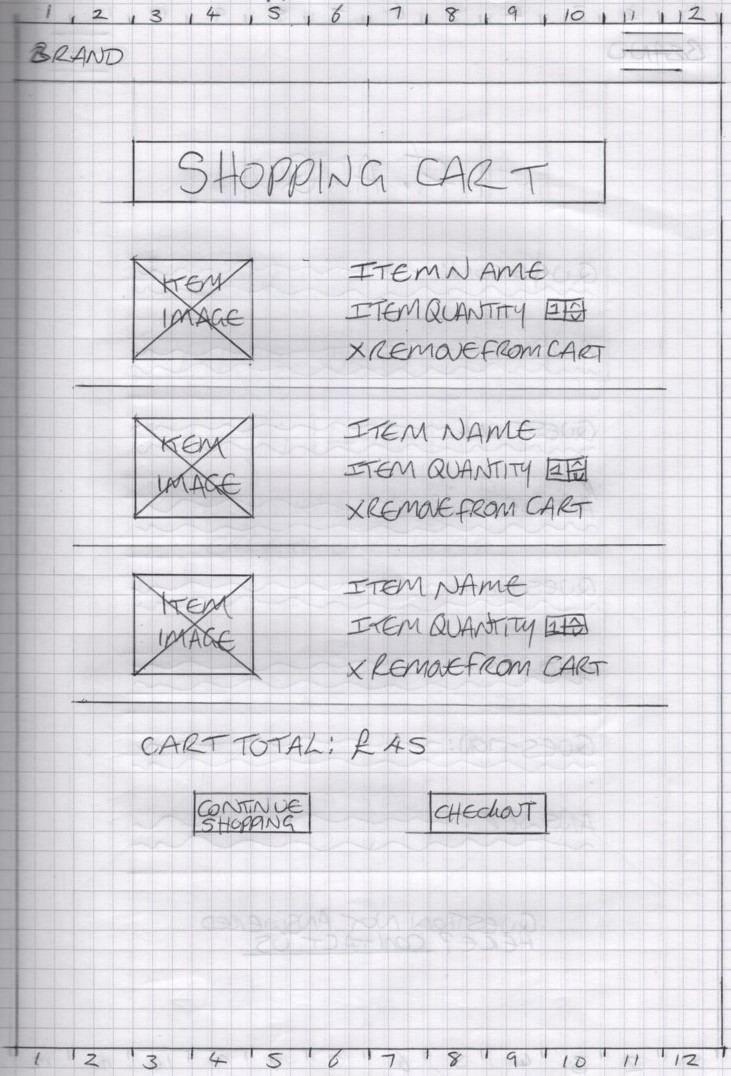 1 2 3 4 5 6 7 8 9 10 11 12
BRAND
SHOPPING CART
ITEM
IMAGE
ITEM NAME
ITEM QUANTITY 1
X REMOVE FROM CART
ITEM
IMAGE
ITEM NAME
ITEM QUANTITY 1
X REMOVE FROM CART
ITEM
IMAGE
ITEM NAME
ITEM QUANTITY 1
X REMOVE FROM CART
CART TOTAL: £45
CONTINUE
SHOPPING
CHECKOUT
QUESTION NOT ANSWERED
HERE? CONTACT US
1 2 3 4 5 6 7 8 9 10 11 12